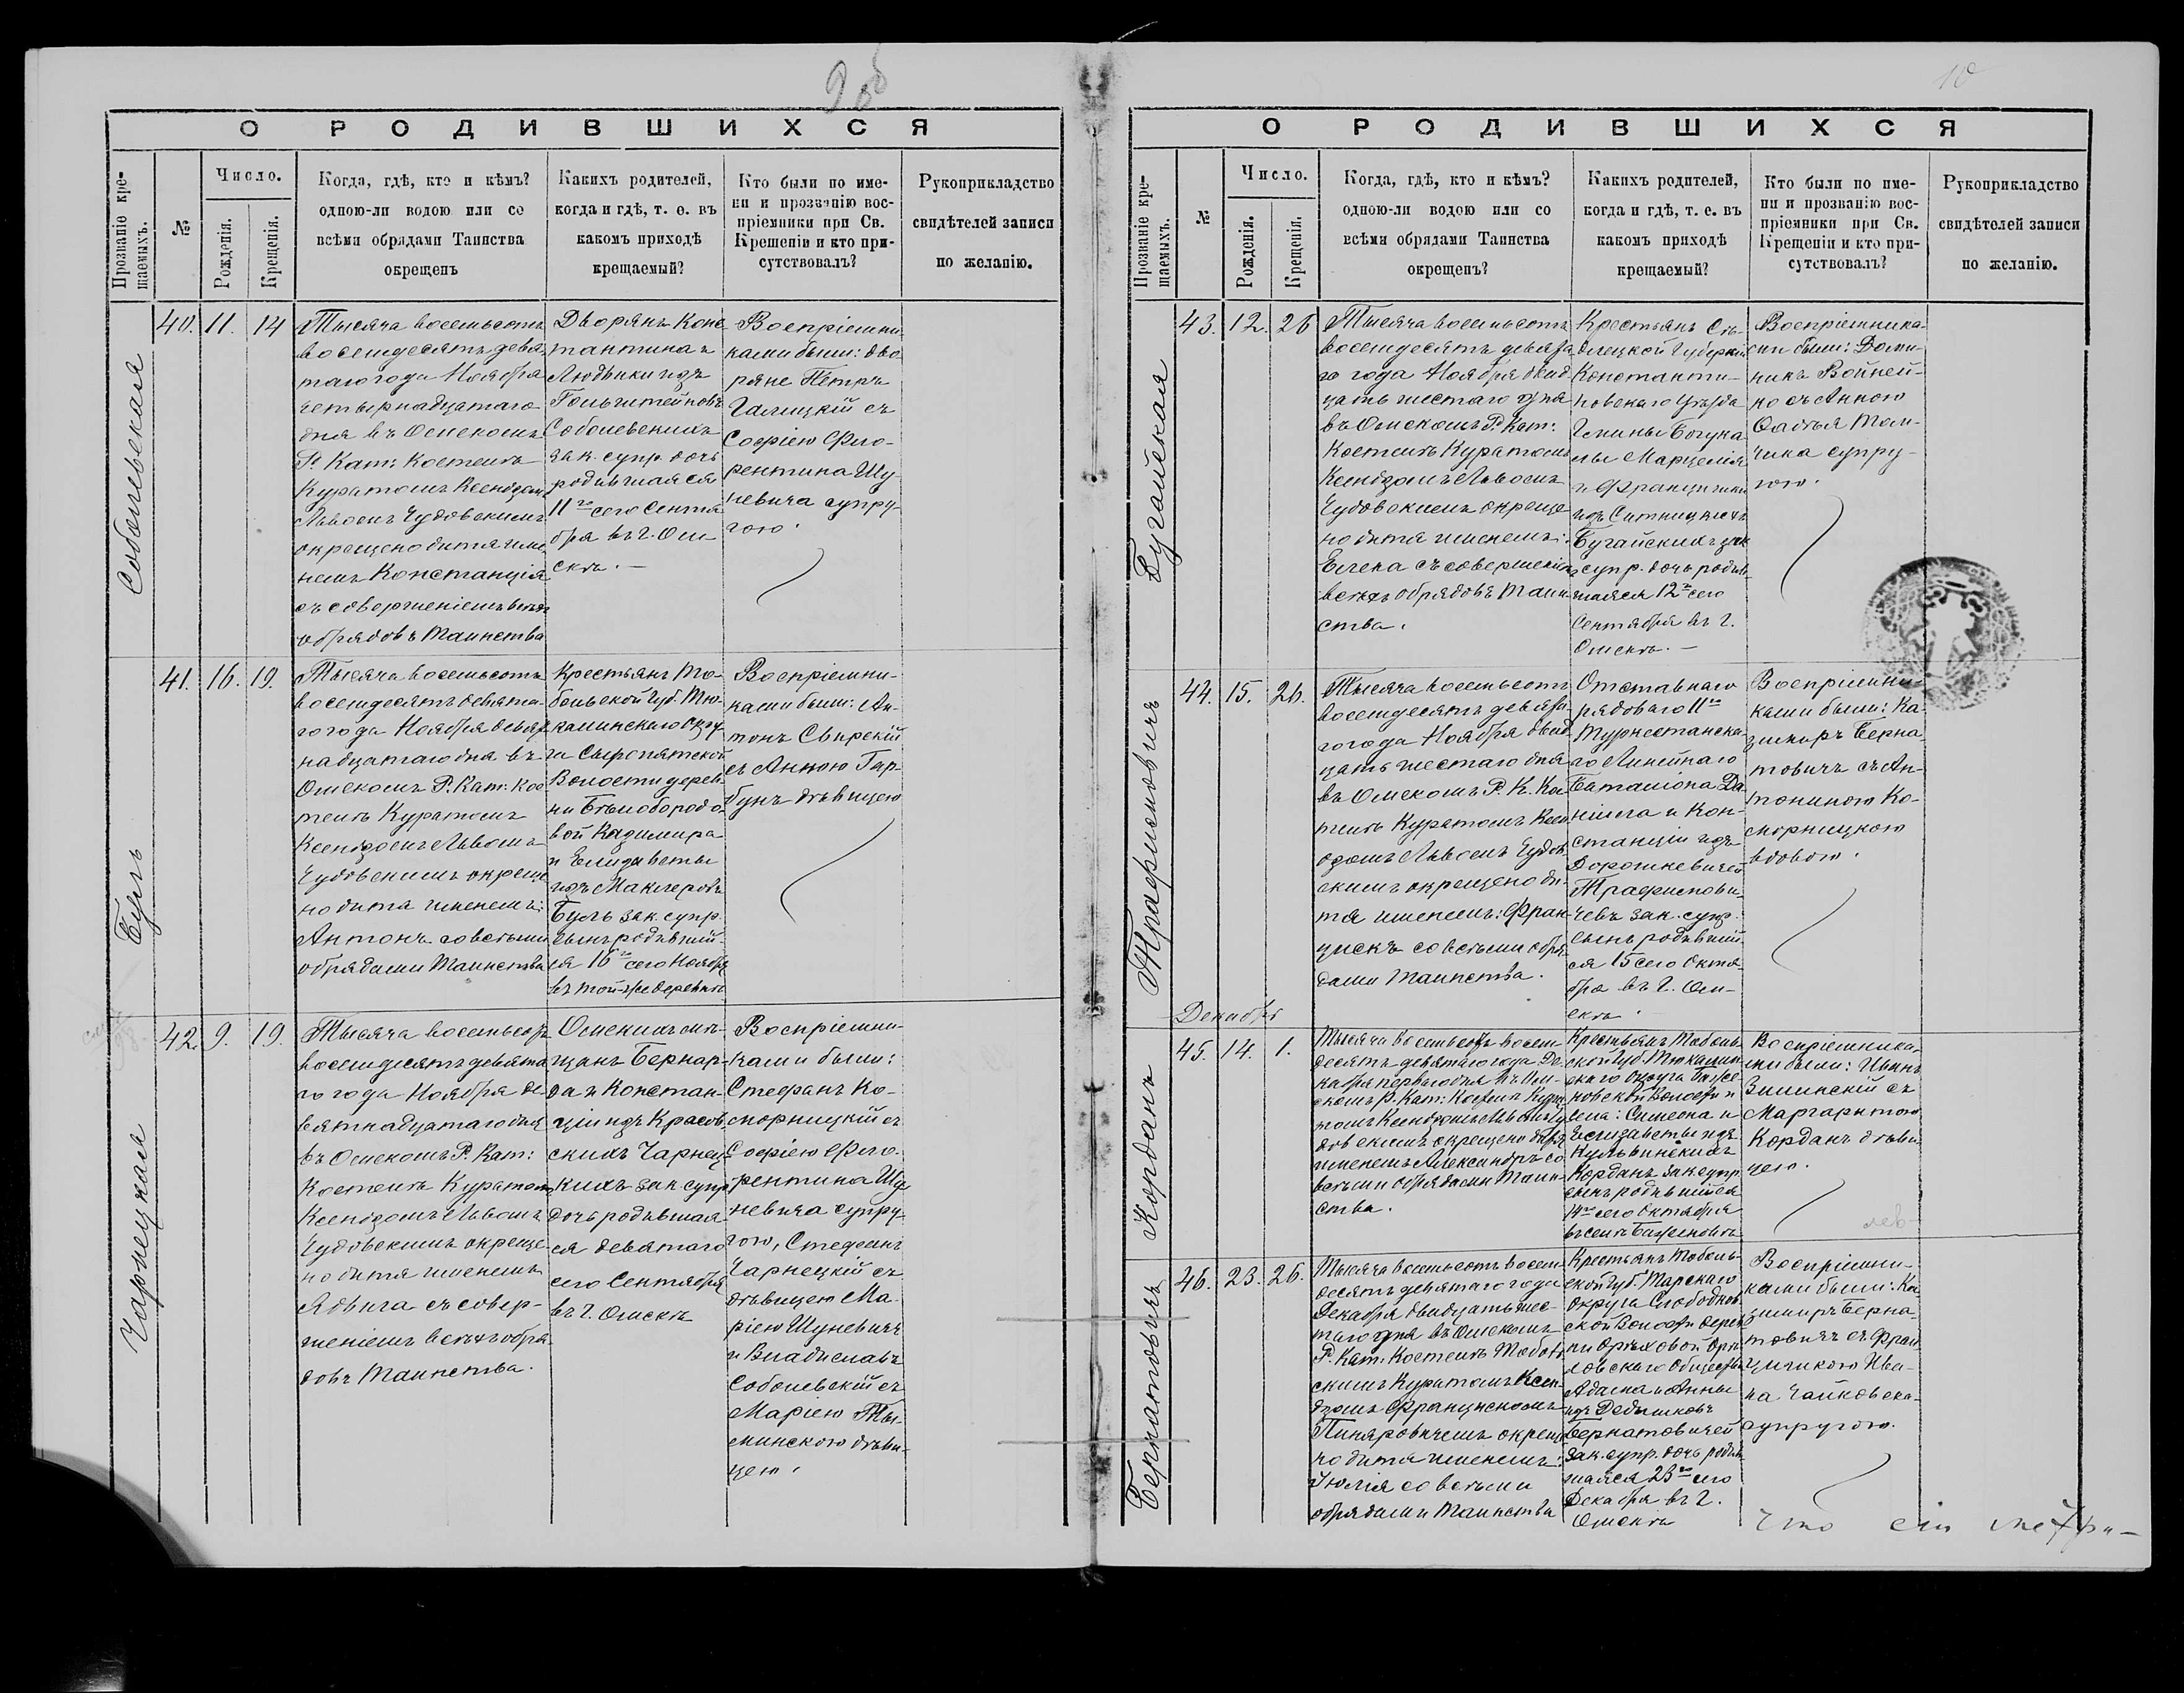 9 об
О РОДИВШИХСЯ
Прозваніе крещаемыхъ.
№
Число.
Рожденія.
Крещенія.
Когда, гдѣ, кто и кѣмъ?
одною-ли водою или со
всѣми обрядами Таинства
окрещенъ
Какихъ родителей,
когда и гдѣ, т. е. въ
какомъ приходѣ
крещаемый?
Кто были по име-
ни и прозванію вос-
пріемники при Св.
Крещеніи и кто при-
сутствовалъ?
Рукоприкладство
свидѣтелей записи
по желанію.
Соболевская
40. 11. 14
Тысяча восемьсотъ
восемдесятъ девя-
таго года Ноября
четырнадцатаго
дня въ Омскомъ
Р. Кат: Костелѣ
Куратомъ Ксендзомъ
Львомъ Чудовскимъ
окрещено дитя име-
немъ Констанція
съ совершеніемъ всѣхъ
обрядовъ Таинства
Дворянъ Конс
тантина и
Людвики изъ
Гольштейновъ
Соболевскихъ
зак. супр. дочь
родившаяся
11го сего Сентя
бря въ г. Ом
скѣ.
Воспріемни
ками были: дво
ряне Петръ
Галицкій съ
Софіею Фло-
рентина Шу
невича супру-
гою.
Буль
41. 16. 19.
Тысяча восемьсотъ
восемдесятъ девята-
го года Ноября девят
надцатаго дня въ
Омскомъ Р. Кат: Кос
телѣ Куратомъ
Ксендзомъ Львомъ
Чудовскимъ окреще
но дитя именемъ:
Антонъ со всѣми
обрядами Таинства
Крестьянъ То-
больской Губ. Тю-
калинскаго Окру-
га Сыропятской
Волости дерев
ни Бѣлобородо
вой Казимира
и Елизаветы
изъ Маклеровъ
Буль зак. супр.
сынъ родившій-
ся 16го сего Ноября
въ той-же деревнѣ
Воспріемни-
ками были: Ан-
тонъ Свирскій
съ Анною Гар-
бунъ дѣвицею
Чарнецкая
42. 9. 19.
Тысяча восемьсотъ
восемдесятъ девята
го года Ноября де-
вятнадцатаго дня
въ Омскомъ Р. Кат:
Костелѣ Куратомъ
Ксендзомъ Львомъ
Чудовскимъ окреще
но дитя именемъ
Ядвига съ совер-
шеніемъ всѣхъ обря
довъ Таинства.
Омскихъ мѣ-
щанъ Бернар-
да и Констан-
ціи изъ Красов
скихъ Чарнец
кихъ зак супр
дочь родившая-
ся девятаго
сего Сентября
въ г. Омскѣ
Воспріемни-
ками были:
Стефанъ Ко-
морницкій съ
Софіею Фло-
рентина Шу
невича супру-
гою, Стефанъ
Чарнецкій съ
дѣвицею Ма-
ріею Шуневичъ
и Владиславъ
Соболевскій съ
Маріею
минскою дѣви-
цею.
10
О РОДИВШИХСЯ
Прозваніе крещаемыхъ.
№
Число.
Рожденія.
Крещенія.
Когда, гдѣ, кто и кѣмъ?
одною-ли водою или со
всѣми обрядами Таинства
окрещенъ?
Какихъ родителей,
когда и гдѣ, т. е. въ
какомъ приходѣ
крещаемый?
Кто были по име-
ни и прозванію вос-
пріемники при Св.
Крещеніи и кто при-
сутствовалъ?
Рукоприкладство
свидѣтелей записи
по желанію.
Бугайская
43. 12. 26
Тысяча восемьсотъ
восемдесятъ девята
го года Ноября двад
цать шестаго дня
въ Омскомъ Р. Кат:
Костелѣ Куратомъ
Ксендзомъ Львомъ
Чудовскимъ окреще
но дитя именемъ:
Елена съ совершеніемъ
всѣхъ обрядовъ Таин
ства.
Крестьянъ Сѣ-
длецкой Губерніи
Константи-
новскаго Уѣзда
Гмины Богука
лы Марцелія
и Францишки
изъ Ситницкихъ
Бугайскихъ зак
супр. дочь родив
шаяся 12го сего
Сентября въ г.
Омскѣ.
Воспріемника-
ми были: Доми-
никъ Войней-
ко съ Анною
супру-
гою.
Трафимовичъ
44. 15. 26.
Тысяча восемьсотъ
восемдесятъ девята-
го года Ноября двад
цать шестаго дня
въ Омскомъ Р. К. Кос
телѣ Куратомъ Ксен
дзомъ Львомъ Чудов
скимъ окрещено ди-
тя именемъ: Фран
цискъ со всѣми обря-
дами Таинства.
Отставнаго
рядоваго 11го
Туркестанска-
го Линейнаго
Баталіона Да
ніила и Кон-
станціи изъ
Дорошкевичей
Трафимови-
чевъ зак. супр.
сынъ родившій
ся 15 сего Октя-
бря въ г. Ом-
скѣ.
Воспріемни-
ками были: Ка-
зимиръ Берна-
товичъ съ Ан-
тониною Ко-
морницкою
вдовою.
Декабрь
Корданъ
45. 14. 1.
Тысяча восемьсотъ восем
десятъ девятаго года Де-
кабря перваго дня въ Ом-
скомъ Р. Кат: Костелѣ Кура
томъ Ксендзомъ Львомъ Чу
довскимъ окрещено дитя
именемъ Александръ со
всѣми обрядами Таин-
ства.
Крестьянъ Тоболь-
ской Губ. Тюкалин-
скаго Округа Баже-
новской Волости и
села: Симеона и
Елизаветы изъ
Кульвинскихъ
Корданъ зак супр
сынъ родившійся
14го сего Октября
въ селѣ Баженовѣ
Воспріемника-
ми были: Иванъ
Зилинскій съ
Маргаритою
Корданъ дѣви
цею.
Бернатовичъ
46. 23. 26.
Тысяча восемьсотъ восем
десятъ девятаго года
Декабря двадцать шес-
таго дня въ Омскомъ
Р. Кат. Костелѣ Тоболь
скимъ Куратомъ Ксен-
дзомъ Францискомъ
окреще
но дитя именемъ:
Юлія со всѣми
обрядами Таинства
Крестьянъ Тоболь-
ской Губ. Тарскаго
округа Слободчик
ской Волости дерев
ни Орѣховой Орл
ловскаго Общества
Адама и Анны
изъ Дедишковъ
Бернатовичей
зак. супр. дочь родив
шаяся 23го сего
Декабря въ г.
Омскѣ
Воспріемни-
ками были: Ка
зимиръ Берна-
товичъ съ Фран
цишкою Ива-
на Чайковска-
супругою.
что сіи метри-